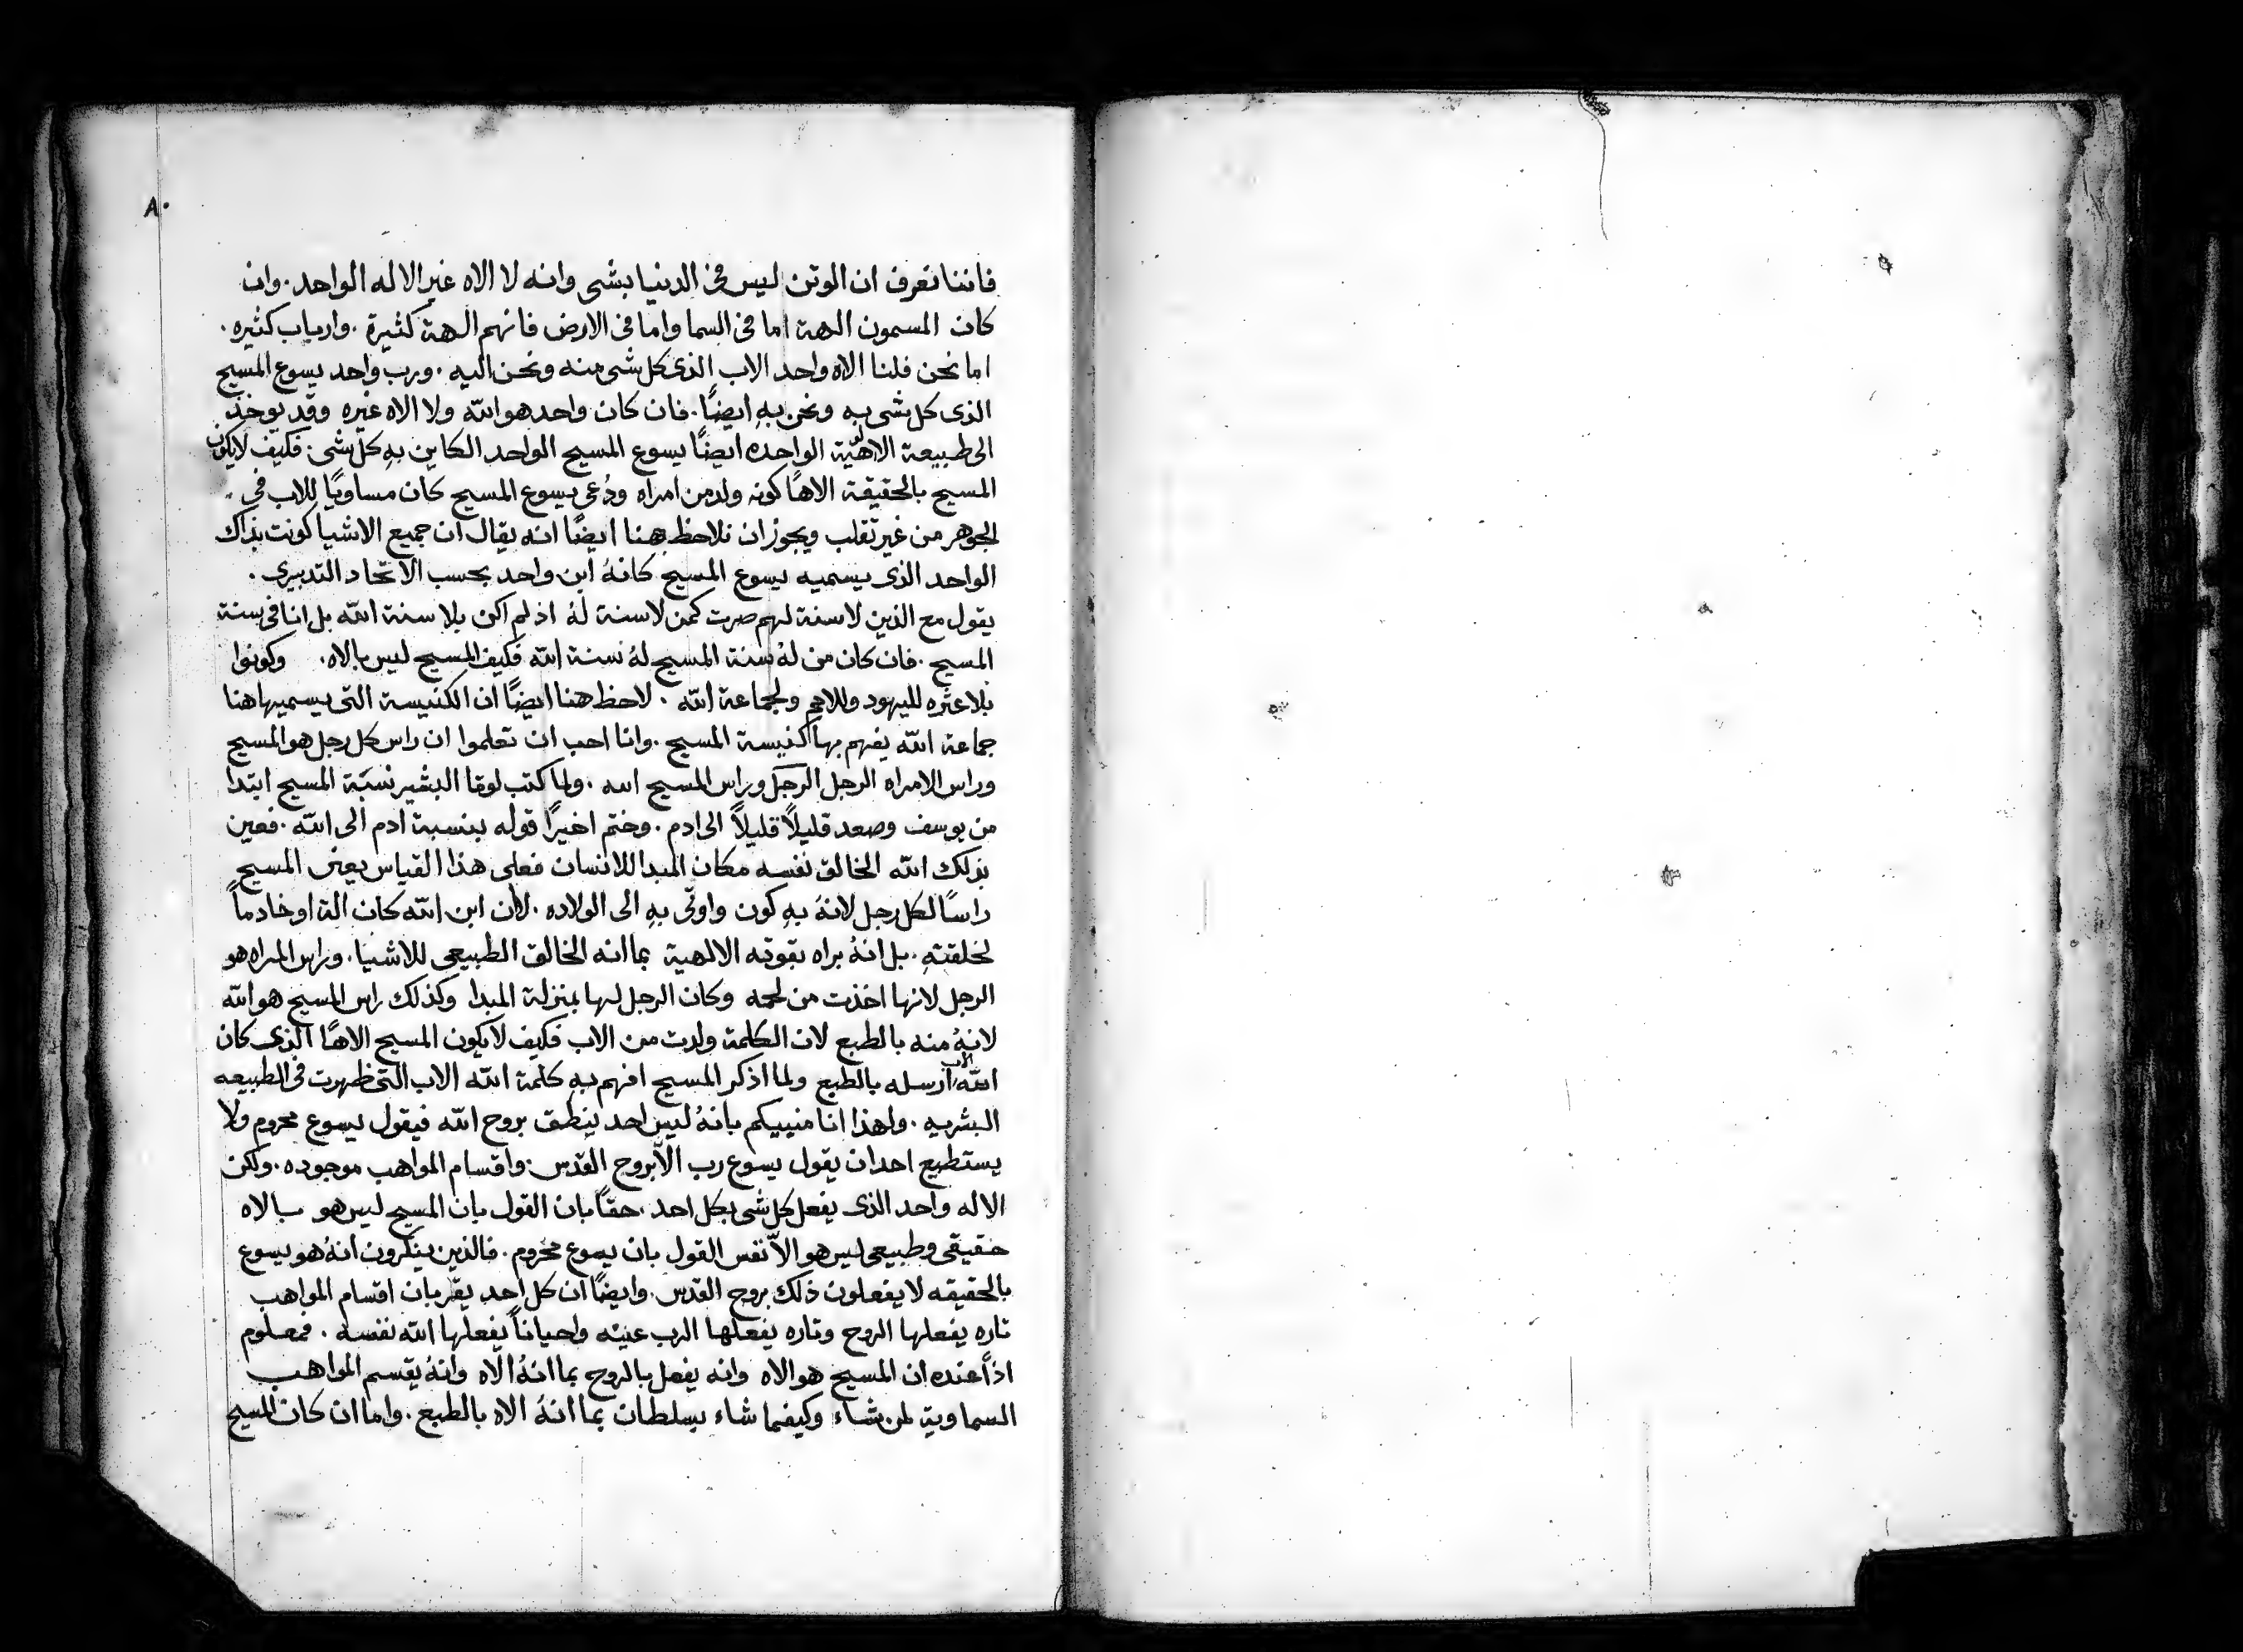 ٨٠
فاننا نعرف ان الوثن ليس في الدنيا بشى وانه لا الاه غير الاله الواحد. وان
كان المسمون الهة اما في السما واما فى الارض فانهم الهة كثيرة. وارباب كثيره.
اما نحن فلنا الاه واحد الاب الذى كل شى منه ونحن اليه. ورب واحد يسوع المسيح
الذى كل شى به ونحن بهِ ايضًا. فان كان واحد هو الله ولا الاه غيره وقد يوخذ
الى طبيعة الالاهيّة الواحده ايضًا يسوع المسيح الواحد الكاين بهِ كل شى. فكيف لا يكون
المسيح بالحقيقة الاهًا كونه ولد من امراه ودُعي يسوع المسيح كان مساويًا للاب في
الجوهر من غير تقلب ويجوز ان نلاحظ هنا ايضًا انه يقال ان جميع الاشيا كونت بذاك
الواحد الذى يسميه يسوع المسيح كانهُ ابن واحد بحسب الاتحاد التدبيرى.
يقول مع الذين لا سنة لهم صرت كمن لا سنة لهُ اذ لم اكن بلا سنة الله بل انا فى سنة
المسيح. فان كان من لهُ سنة المسيح لهُ سنة الله فكيف المسيح ليس بالاه. وكونوا
بلا عثره لليهود وللامم ولجماعة الله. لاحظ هنا ايضًا ان الكنيسة التى يسميها هنا
جماعة الله يفهم بها كنيسة المسيح. وانا احب ان تعلموا ان راس كل رجل هو المسيح
وراس الامراه الرجل الرجل وراس المسيح الله. ولما كتب لوقا البشير نسبة المسيح ابتدا
من يوسف وصعد قليلًا قليلًا الى ادم. وختم اخيرًا قوله بنسبة ادم الى الله. فعين
بذلك الله الخالق نفسه مكان المبدا للانسان فعلى هذا القياس يعنى المسيح
راسًا لكل رجل لانهُ بهِ كون واوتى بهِ الى الولاده. لان ابن الله كان الة او خادماً
لخلقتهِ. بل انهُ براه بقوته الالهية بما انه الخالق الطبيعى للاشيا. وراس المراه هو
الرجل لانها اخذت من لحمه وكان الرجل لها بمنزلة المبدا وكذلك راس المسيح هو الله
لانهُ منه بالطبع لان الكلمة ولدت من الاب فكيف لا يكون المسيح الاهًا الذى كان
الله الاب ارسله بالطبع ولما اذكر المسيح افهم بهِ كلمة الله الاب التى ظهرت فى الطبيعه
البشريه. ولهذا انا منبيكم بانهُ ليس احد ينطق بروح الله فيقول يسوع محروم ولا
يستطيع احد ان يقول يسوع رب الاّ بروح القدس. واقسام المواهب موجوده. ولكن
الاله واحد الذى يفعل كل شى بكل احد. حقًا بان القول بان المسيح ليس هو بالاه
حقيقى وطبيعى ليس هو الاّ نفس القول بان يسوع محروم. فالذين ينكرون انهُ هو يسوع
بالحقيقه لا يفعلون ذلك بروح القدس. وايضًا ان كل احد يقر بان اقسام المواهب
تاره يفعلها الروح وتاره يفعلها الرب عينه واحياناً يفعلها الله نفسه. فمعلوم
اذًا عنده ان المسيح هو الاه وانه يفعل بالروح بما انهُ الاه وانهُ يقسم المواهب
السماوية لمن شاء وكيفما شاء بسلطان بما انهُ الاه بالطبع. واما ان كان المسيح